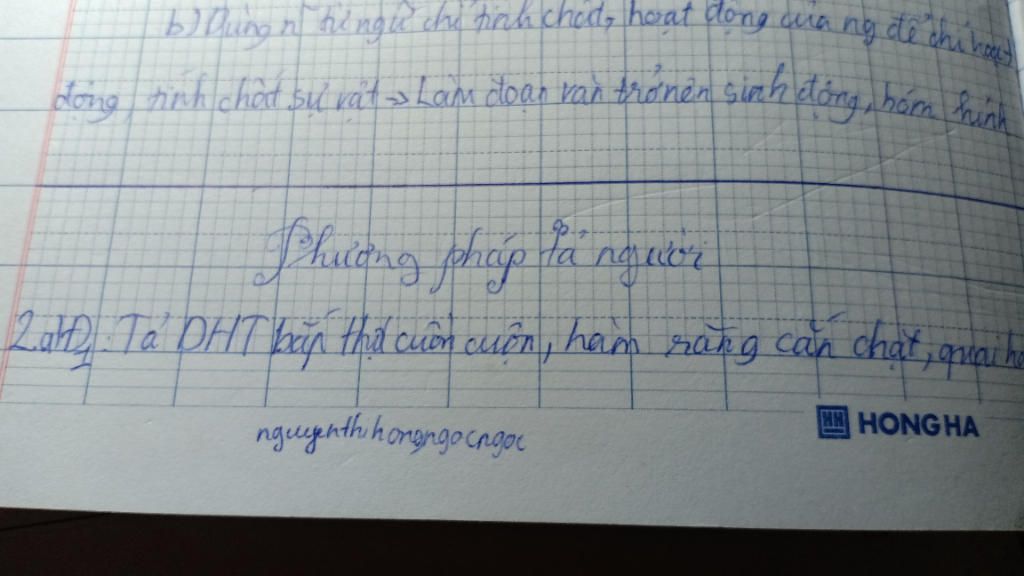 b) Dùng n~ từ ngữ chỉ tính chất, hoạt động của ng để chỉ hoạt
động, tính chất sự vật -> Làm đoạn văn trở nên sinh động, hóm hỉnh
Phương pháp tả người
2. a) Đ1: Tả DHT bắp thịt cuồn cuộn, hàm răng cắn chặt, quai h
nguyenthihongngocngoc
HH HONG HA